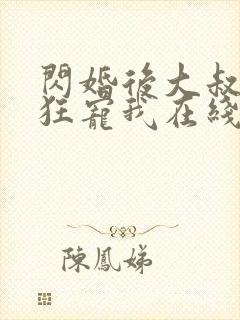 閃婚後大叔
狂寵我在綫
陳鳳娣